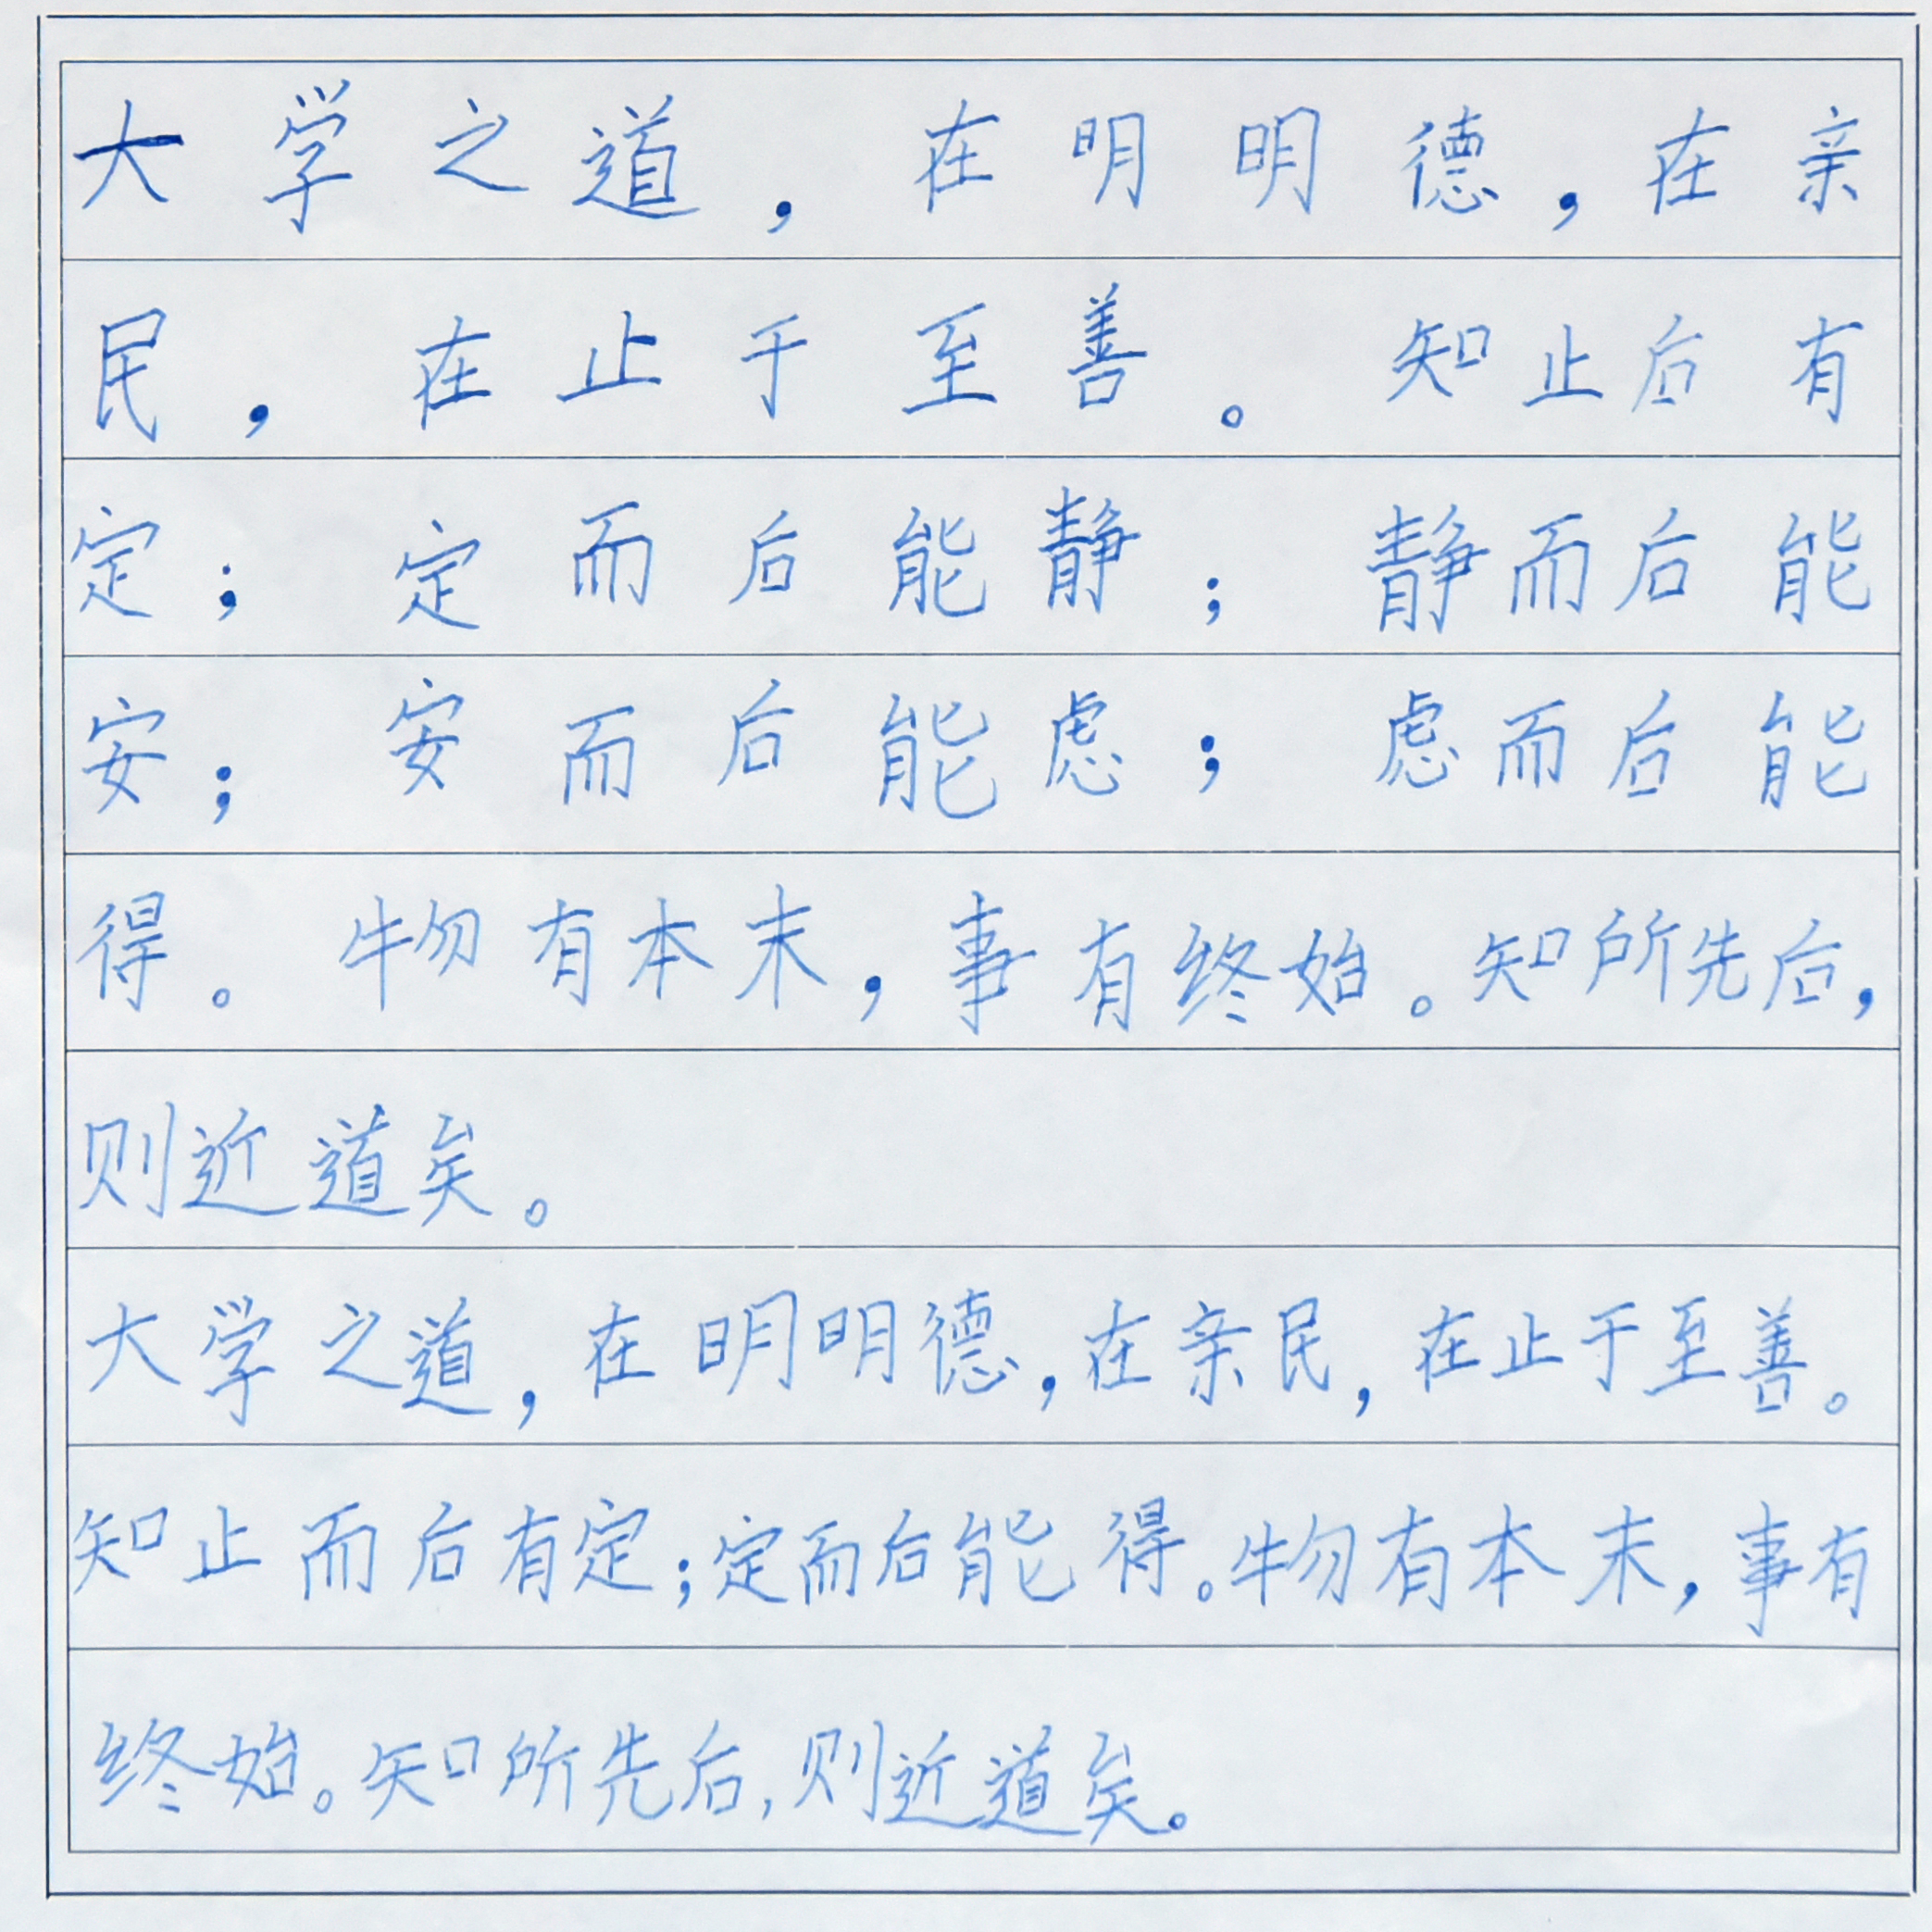 大学之道，在明明德，在亲
民，在止于至善。知止后有
定；定而后能静；静而后能
安；安而后能虑；虑而后能
得。物有本末，事有终始。知所先后，
则近道矣。
大学之道，在明明德，在亲民，在止于至善。
知止而后有定；定而后能得。物有本末，事有
终始。知所先后，则近道矣。